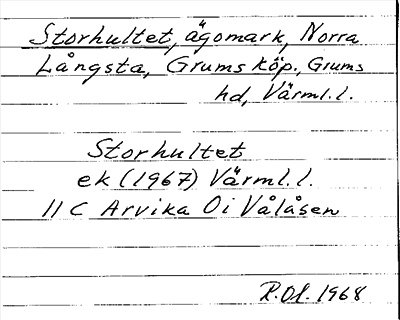 Storhultet, ägomark, Norra
Långsta, Grums köp., Grums
hd, Värml. l.
Storhultet
ek (1967) Värml. l.
11 C Arvika Oi Vålåsen
R.Ol. 1968